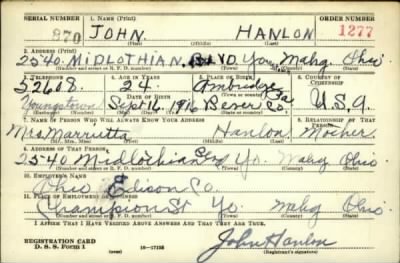 SERIAL NUMBER 1. NAME (Print) ORDER NUMBER
870 JOHN HANLON 1277
(First) (Middle) (Last)
2. ADDRESS (Print)
2540 MIDLOTHIAN BLVD Yo. Mahg. Ohio
(Number and street or R. F. D. number) (Town) (County) (State)
3. TELEPHONE 4. AGE IN YEARS 5. PLACE OF BIRTH 6. COUNTRY OF CITIZENSHIP
52608 24 Ambridge
DATE OF BIRTH Pa
Youngstown Sept 16, 1916 Bever Co. U.S.A
(Exchange) (Number) (Mo.) (Day) (Yr.) (State or country)
7. NAME OF PERSON WHO WILL ALWAYS KNOW YOUR ADDRESS 8. RELATIONSHIP OF THAT PERSON
Mrs. Marrietta Hanlon Mother
(Mr., Mrs., Miss) (First) (Middle) (Last)
9. ADDRESS OF THAT PERSON
2540 Midlothian Blvd Yo. Mahg Ohio
(Number and street or R. F. D. number) (Town) (County) (State)
10. EMPLOYER'S NAME
Ohio Edison Co.
11. PLACE OF EMPLOYMENT OR BUSINESS
Champion St Yo Mahg Ohio
(Number and street or R. F. D. number) (Town) (County) (State)
I AFFIRM THAT I HAVE VERIFIED ABOVE ANSWERS AND THAT THEY ARE TRUE.
REGISTRATION CARD
D. S. S. Form 1 (over) 16—17105 John Hanlon
(Registrant's signature)